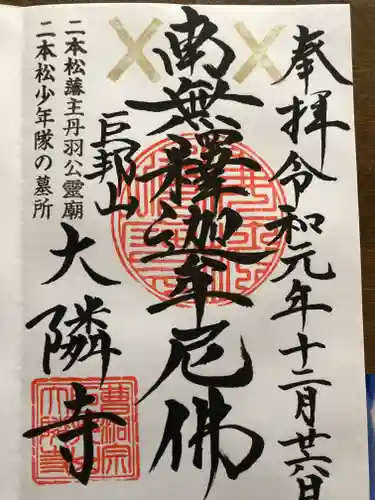 奉拝令和元年十二月廿六日
南無釋迦牟尼佛
巨邦山
大隣寺
二本松藩主丹羽公霊廟
二本松少年隊の墓所